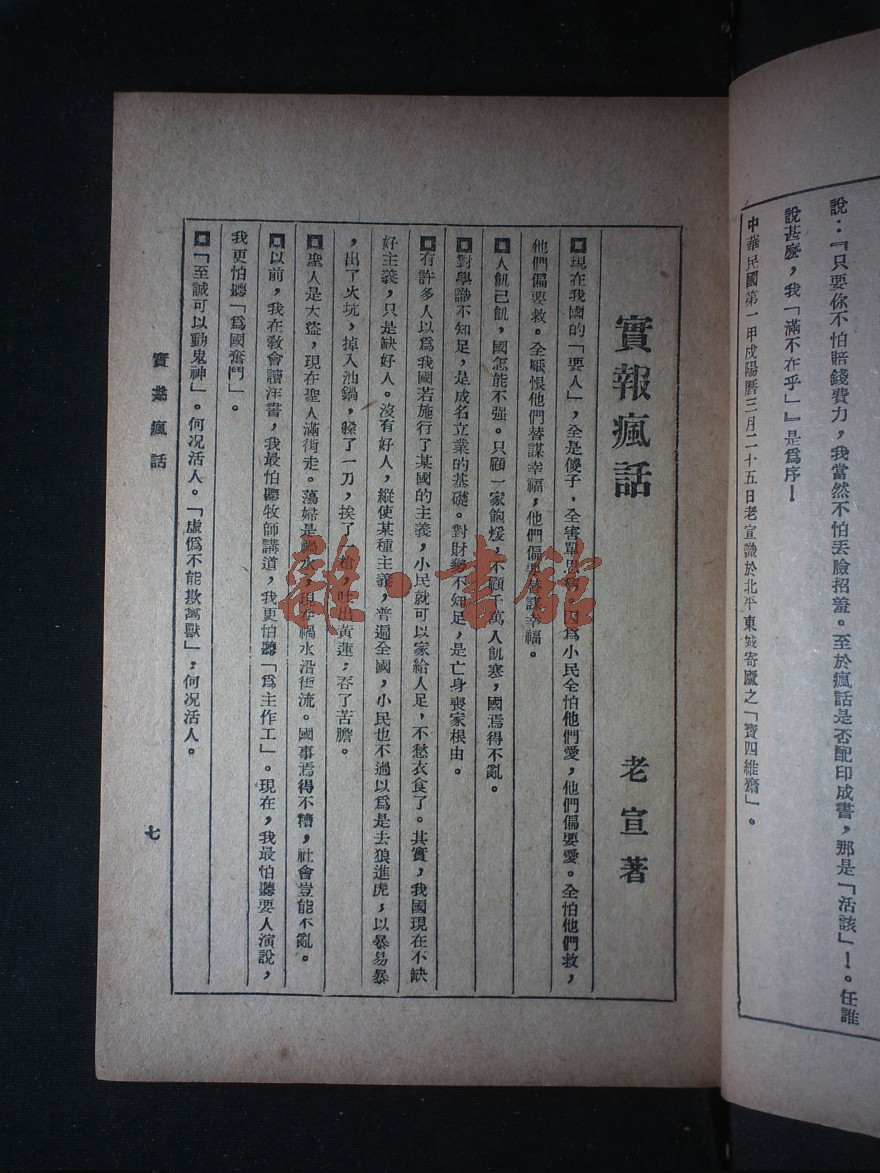 說：『只要你不怕賠錢費力，我當然不怕丟臉招羞。至於瘋話是否配印成書，那是「活該」！。任誰
說甚麼，我「滿不在乎」』是爲序！
中華民國第一甲戌陽曆三月二十五日老宣識於北平東城寄廬之「寶四維齋」。
實報瘋話
老宣著
◘現在我國的「要人」，全是傻子，全害單思病，因爲小民全怕他們愛，他們偏要愛。全怕他們救，
他們偏要救。全厭恨他們替謀幸福，他們偏要替謀幸福。
◘人飢己飢，國怎能不强。只顧一家飽煖，不顧千萬人飢寒，國焉得不亂。
◘對學識不知足，是成名立業的基礎。對財勢不知足，是亡身喪家根由。
◘有許多人以爲我國若施行了某國的主義，小民就可以家給人足，不愁衣食了。其實，我國現在不缺
好主義，只是缺好人。沒有好人，縱使某種主義，普遍全國，小民也不過以爲是去狼進虎，以暴易暴
，出了火坑，掉入油鍋，躱了一刀，挨了一槍，吐出黃蓮；吞了苦膽。
◘聖人是大盜，現在聖人滿街走。蕩婦是禍水，現在禍水沿街流。國事焉得不糟，社會豈能不亂。
◘以前，我在敎會讀洋書，我最怕聽牧師講道，我更怕聽「爲主作工」。現在，我最怕聽要人演說，
我更怕聽「爲國奮鬥」。
◘「至誠可以動鬼神」。何况活人。「虛僞不能欺禽獸」；何况活人。
實報瘋話
七
雜·書館